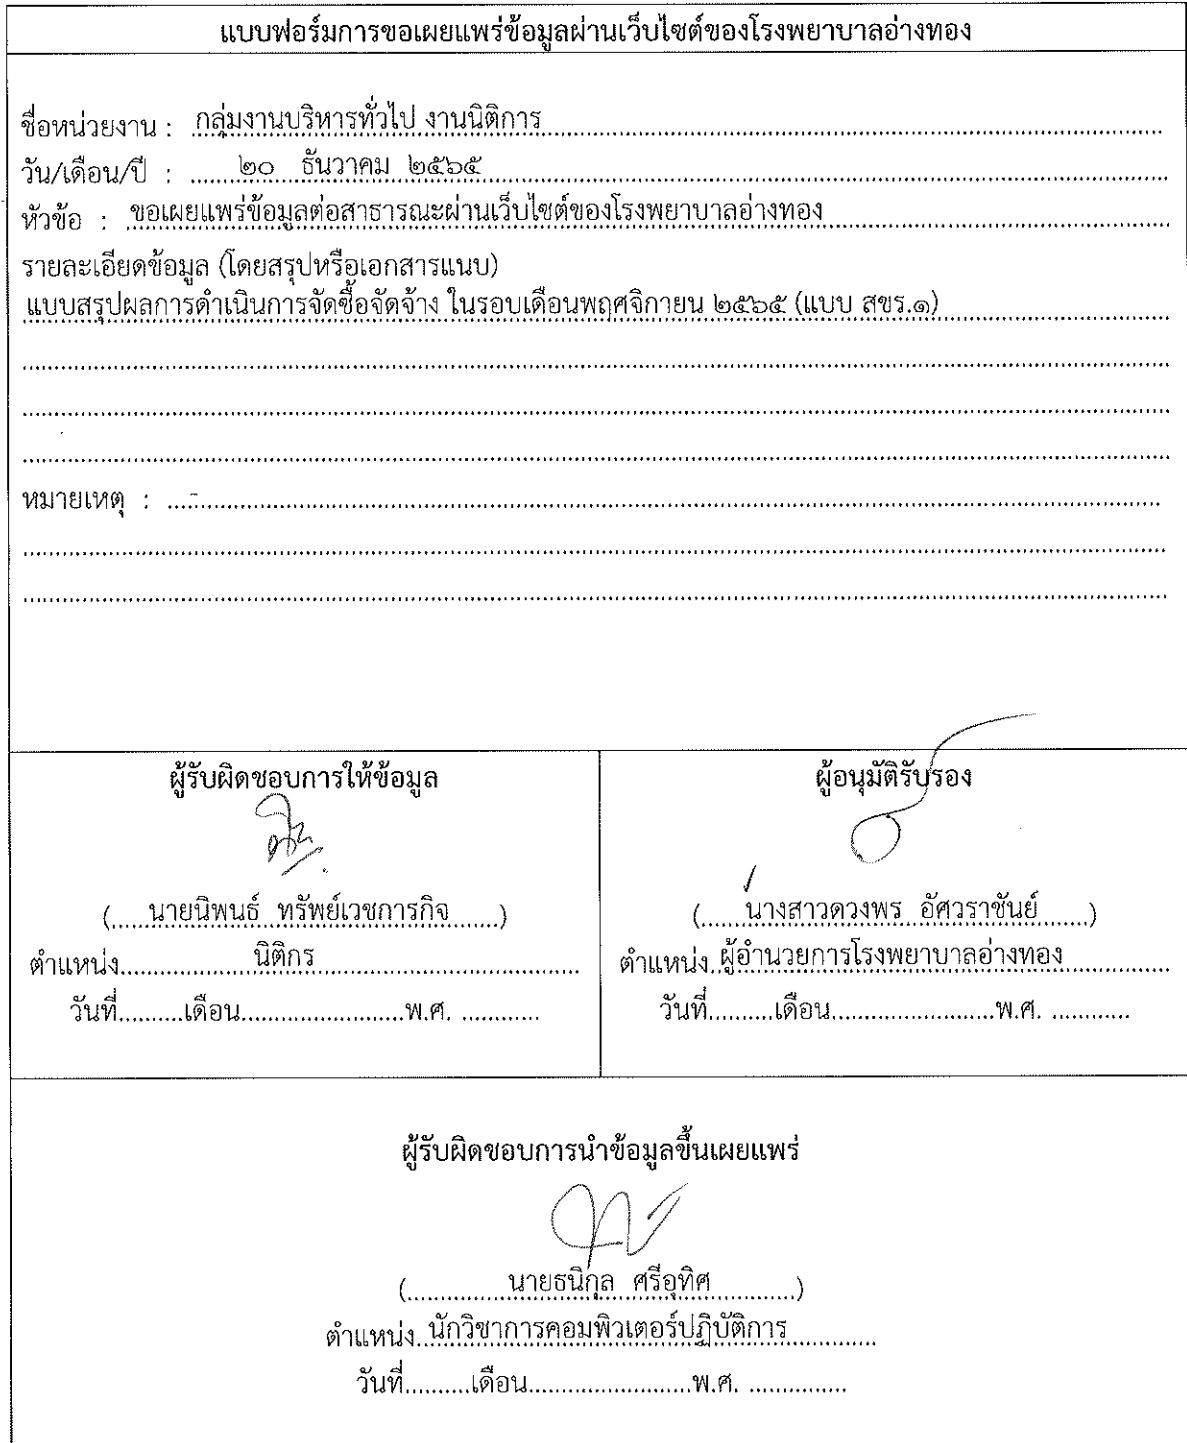 แบบฟอร์มการขอเผยแพร่ข้อมูลผ่านเว็บไซต์ของโรงพยาบาลอ่างทอง
ชื่อหน่วยงาน : กลุ่มงานบริหารทั่วไป งานนิติการ
วัน/เดือน/ปี : ๒๐ ธันวาคม ๒๕๖๕
หัวข้อ : ขอเผยแพร่ข้อมูลต่อสาธารณะผ่านเว็บไซต์ของโรงพยาบาลอ่างทอง
รายละเอียดข้อมูล (โดยสรุปหรือเอกสารแนบ)
แบบสรุปผลการดำเนินการจัดซื้อจัดจ้าง ในรอบเดือนพฤศจิกายน ๒๕๖๕ (แบบ สขร.๑)
หมายเหตุ : -
ผู้รับผิดชอบการให้ข้อมูล
(นายนิพนธ์ ทรัพย์เวชการกิจ)
ตำแหน่ง นิติกร
วันที่.........เดือน........................พ.ศ. ............
ผู้อนุมัติรับรอง
(นางสาวดวงพร อัศวราชันย์)
ตำแหน่ง ผู้อำนวยการโรงพยาบาลอ่างทอง
วันที่.........เดือน........................พ.ศ. ............
ผู้รับผิดชอบการนำข้อมูลขึ้นเผยแพร่
(นายธนิกุล ศรีอุทิศ)
ตำแหน่ง นักวิชาการคอมพิวเตอร์ปฏิบัติการ
วันที่.........เดือน........................พ.ศ. ...............